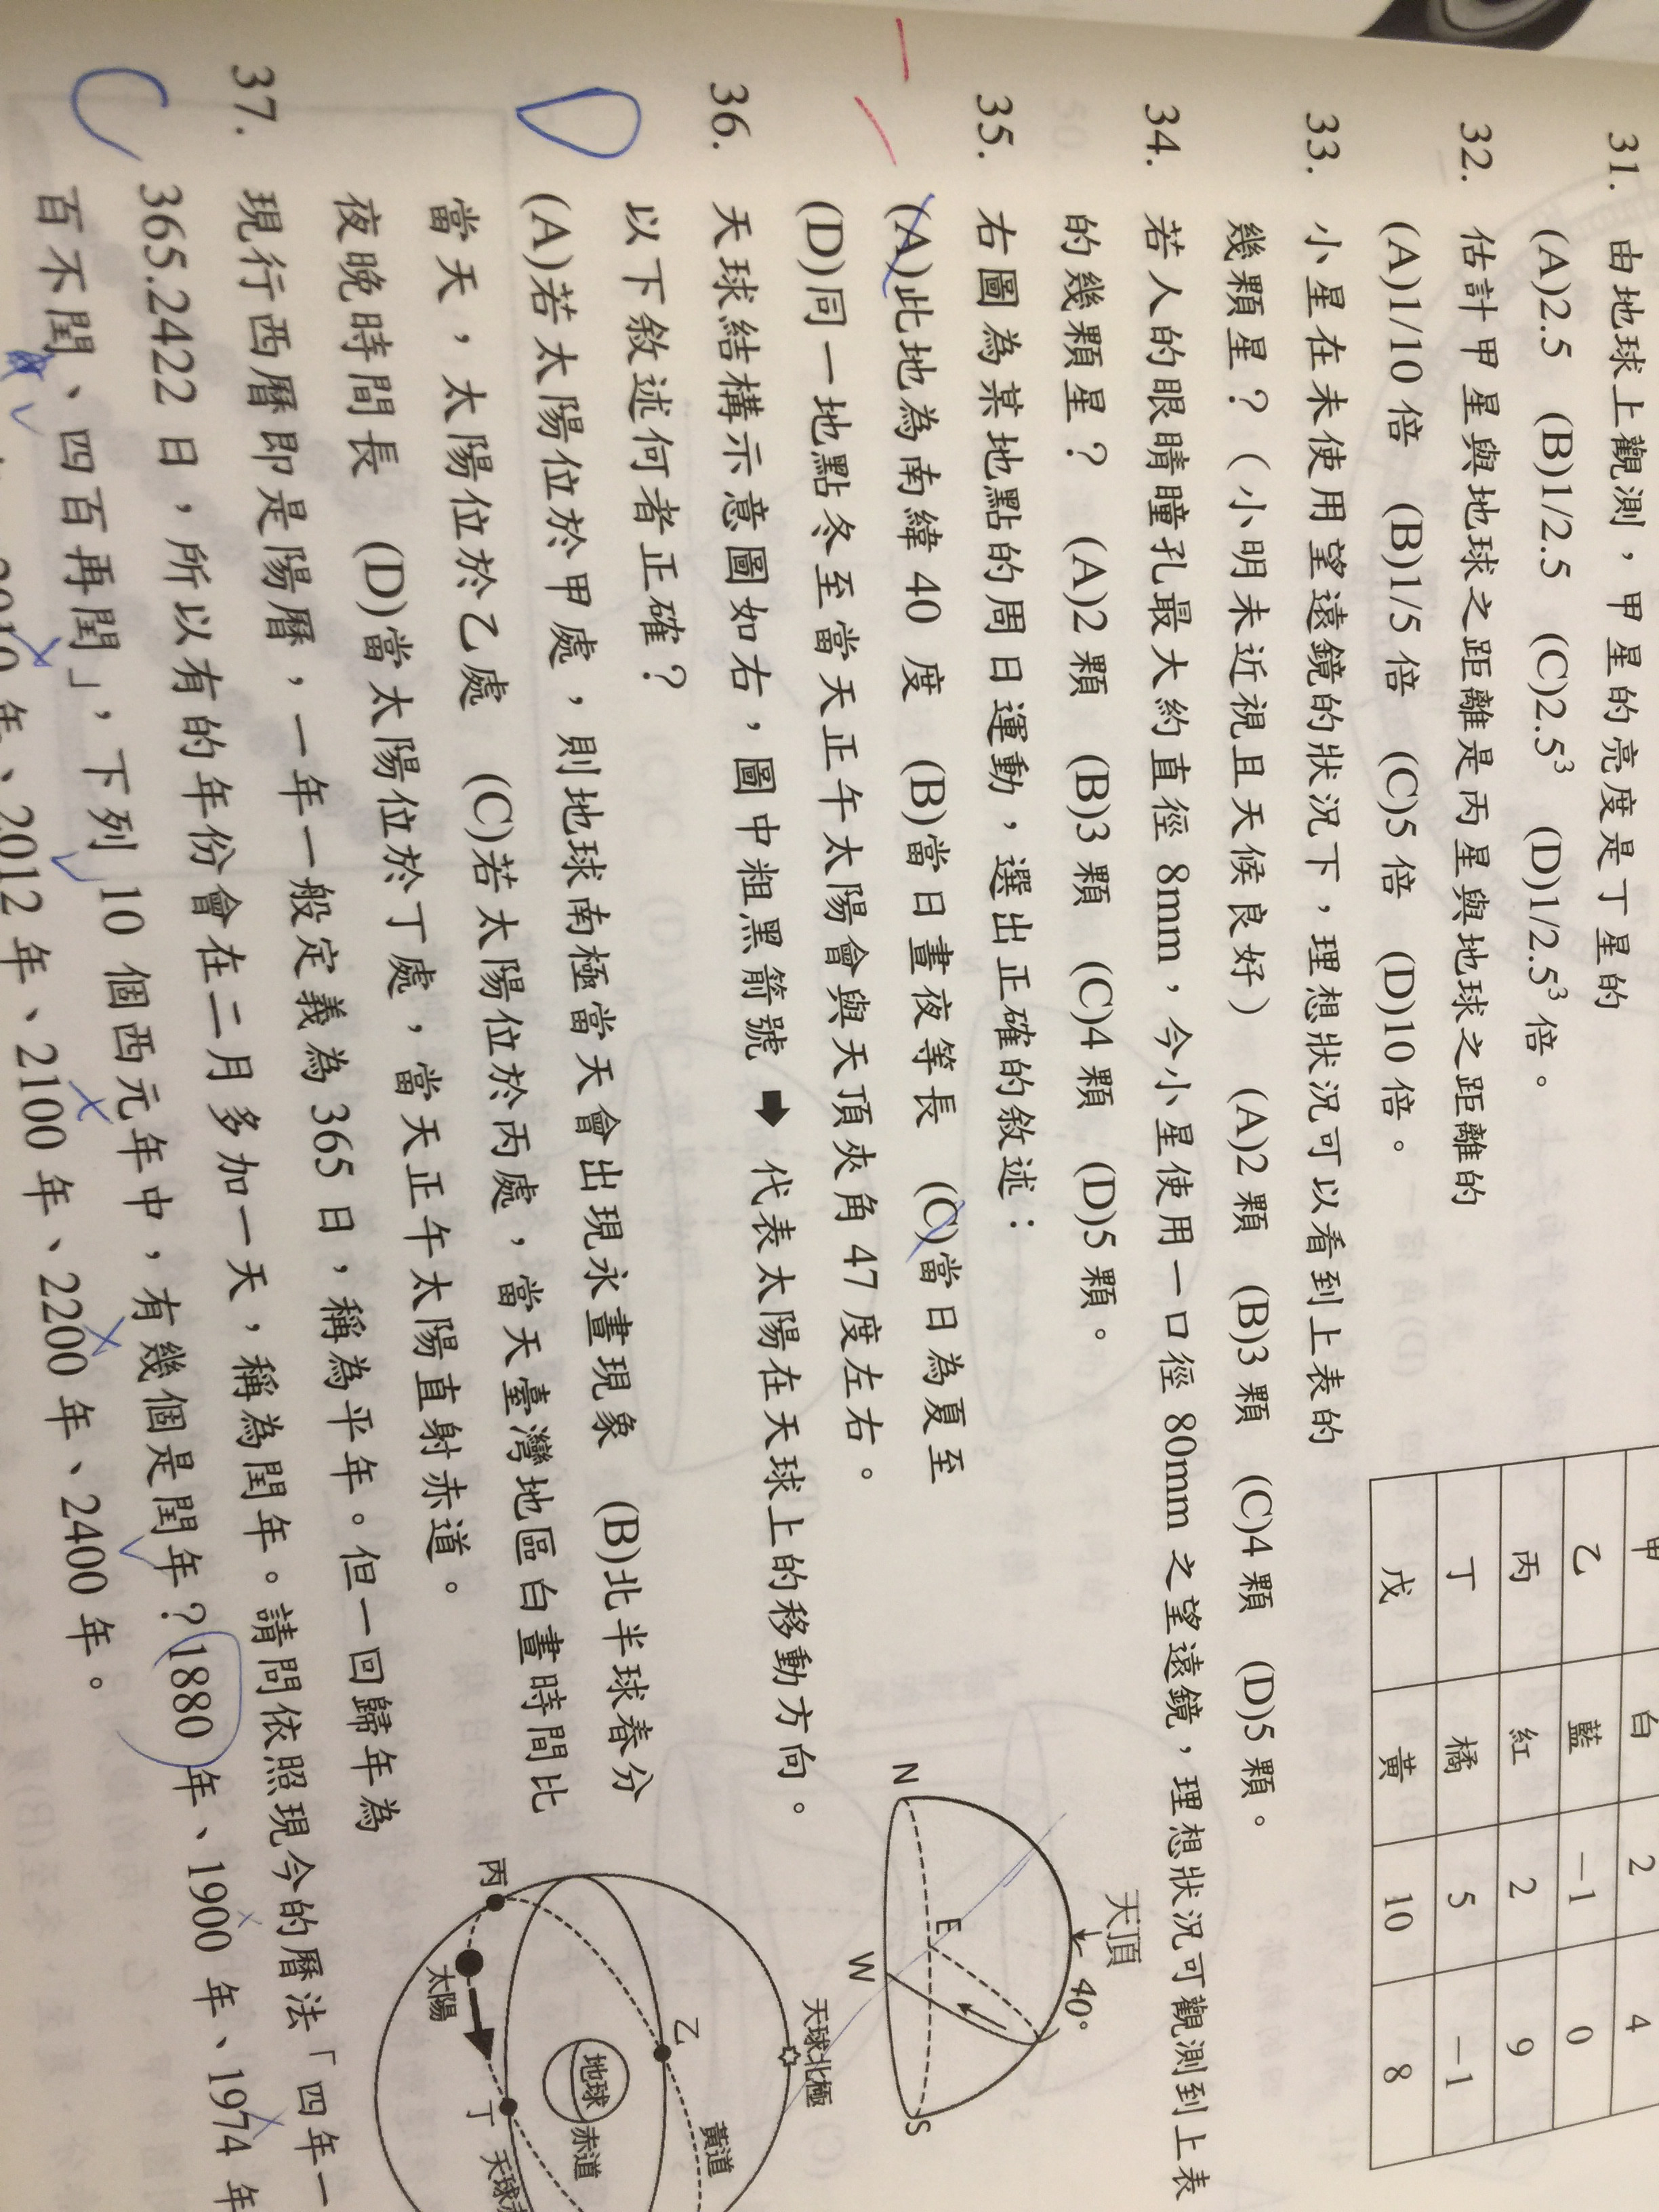 甲 白 2 4
乙 藍 −1 0
丙 紅 2 9
丁 橘 5 −1
戊 黃 10 8
31. 由地球上觀測，甲星的亮度是丁星的
(A)2.5 (B)1/2.5 (C)2.5³ (D)1/2.5³ 倍。
32. 估計甲星與地球之距離是丙星與地球之距離的
(A)1/10 倍 (B)1/5 倍 (C)5 倍 (D)10 倍。
33. 小星在未使用望遠鏡的狀況下，理想狀況可以看到上表的
幾顆星？（小明未近視且天候良好） (A)2 顆 (B)3 顆 (C)4 顆 (D)5 顆。
34. 若人的眼睛瞳孔最大約直徑 8mm，今小星使用一口徑 80mm 之望遠鏡，理想狀況可觀測到上表
的幾顆星？ (A)2 顆 (B)3 顆 (C)4 顆 (D)5 顆。
35. 右圖為某地點的周日運動，選出正確的敘述：
(A)此地為南緯 40 度 (B)當日晝夜等長 (C)當日為夏至
(D)同一地點冬至當天正午太陽會與天頂夾角 47 度左右。
天頂
40°
N
E
W
S
36. 天球結構示意圖如右，圖中粗黑箭號 ➡ 代表太陽在天球上的移動方向。
以下敘述何者正確？
(A)若太陽位於甲處，則地球南極當天會出現永晝現象 (B)北半球春分
當天，太陽位於乙處 (C)若太陽位於丙處，當天臺灣地區白晝時間比
夜晚時間長 (D)當太陽位於丁處，當天正午太陽直射赤道。
天球北極
黃道
乙
地球
赤道
丙
太陽
丁
天球赤
37. 現行西曆即是陽曆，一年一般定義為 365 日，稱為平年。但一回歸年為
365.2422 日，所以有的年份會在二月多加一天，稱為閏年。請問依照現今的曆法「四年一
百不閏、四百再閏」，下列 10 個西元年中，有幾個是閏年？1880 年、1900 年、1974 年
年、2012 年、2100 年、2200 年、2400 年。